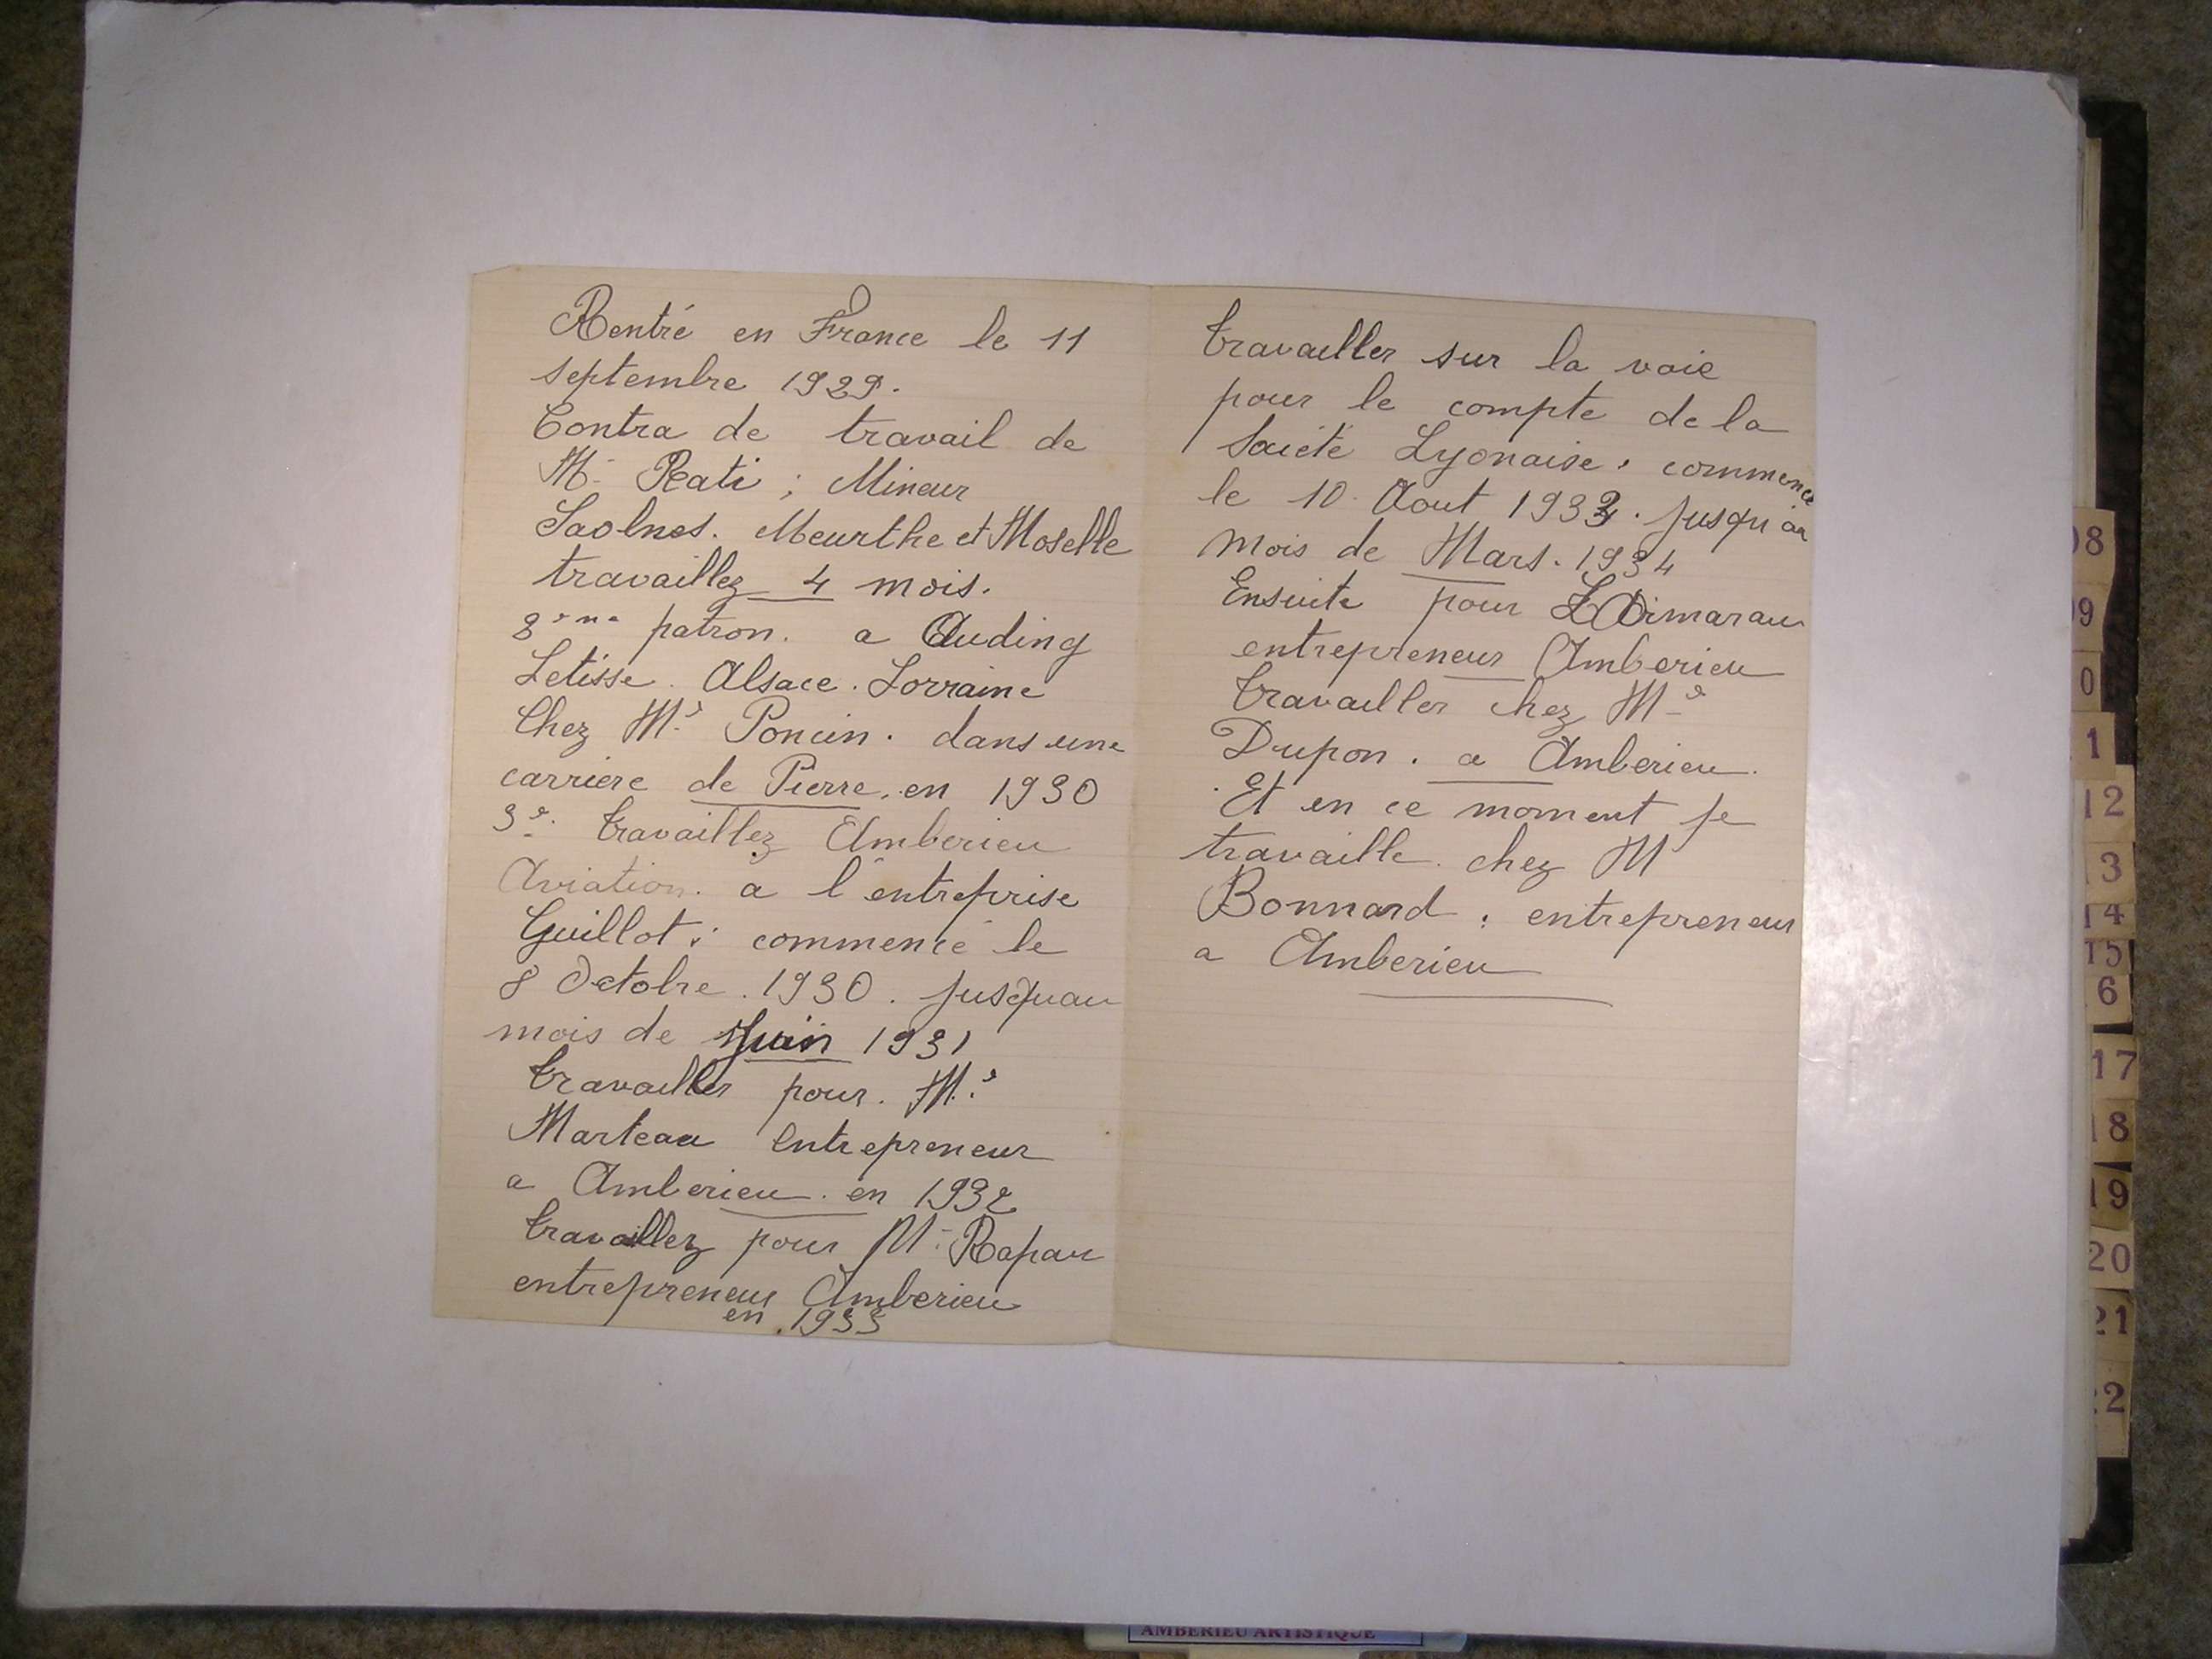 Rentré en France le 11
septembre 1929.
Contra de travail de
M. Rati ; Mineur
Saolnes. Meurthe et Moselle
travaillez 4 mois.
patron. a Auding
Letisse. Alsace. Lorraine
Chez Mr Poncin. dans une
carriere de Pierre. en 1930
3e. travaillez Amberieu
Aviation. a l'entreprise
Guillot. commencé le
8 Octobre. 1930. jusquau
mois de Juin 1931
travailler pour. Mr
Marteau entrepreneur
a Amberieu. en 1932
travaillez pour M. Rapau
entrepreneur Amberieu
en. 1933
travailler sur la voie
pour le compte de la
Société Lyonaise. commence
le 10. Aout jusqu'au
mois de Mars. 1934
Ensuite pour
entrepreneur Amberieu
travailler chez Mr
Dupon. a Amberieu.
Et en ce moment je
travaille. chez M
Bonnard : entrepreneur
a Amberieu
08
09
0
1
12
3
14
15
6
17
18
19
20
21
22
AMBERIEU ARTISTIQUE